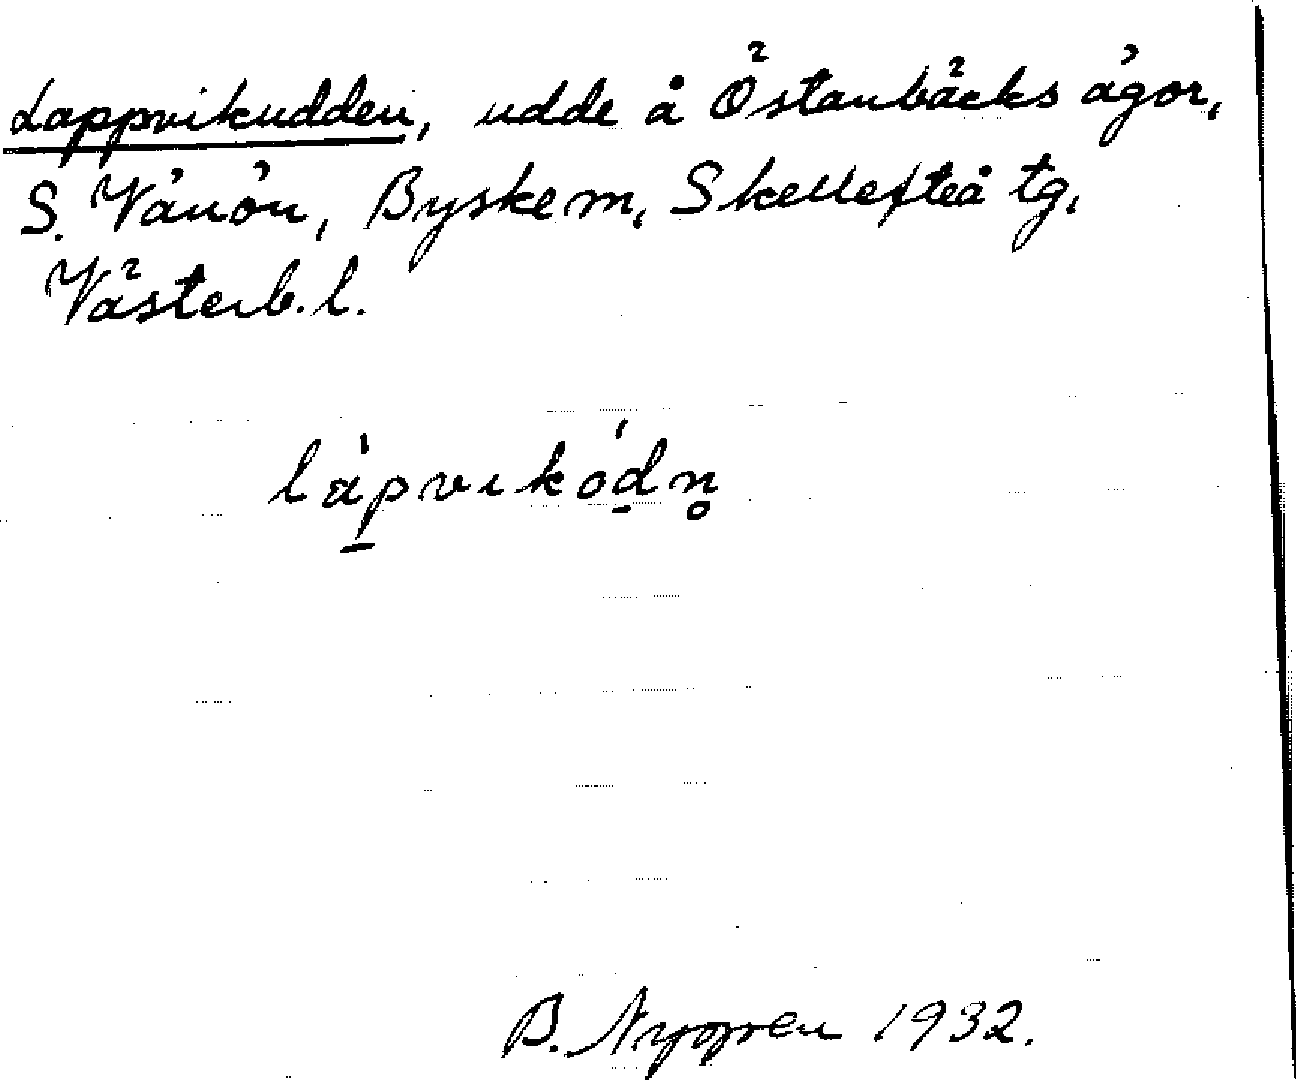 Lappvikudden, udde å Östanbäcks ägor,
S. Vänön, Byske m, Skellefteå tg,
Västerb. l.
lápvikódn̥
B. Nygren 1932.